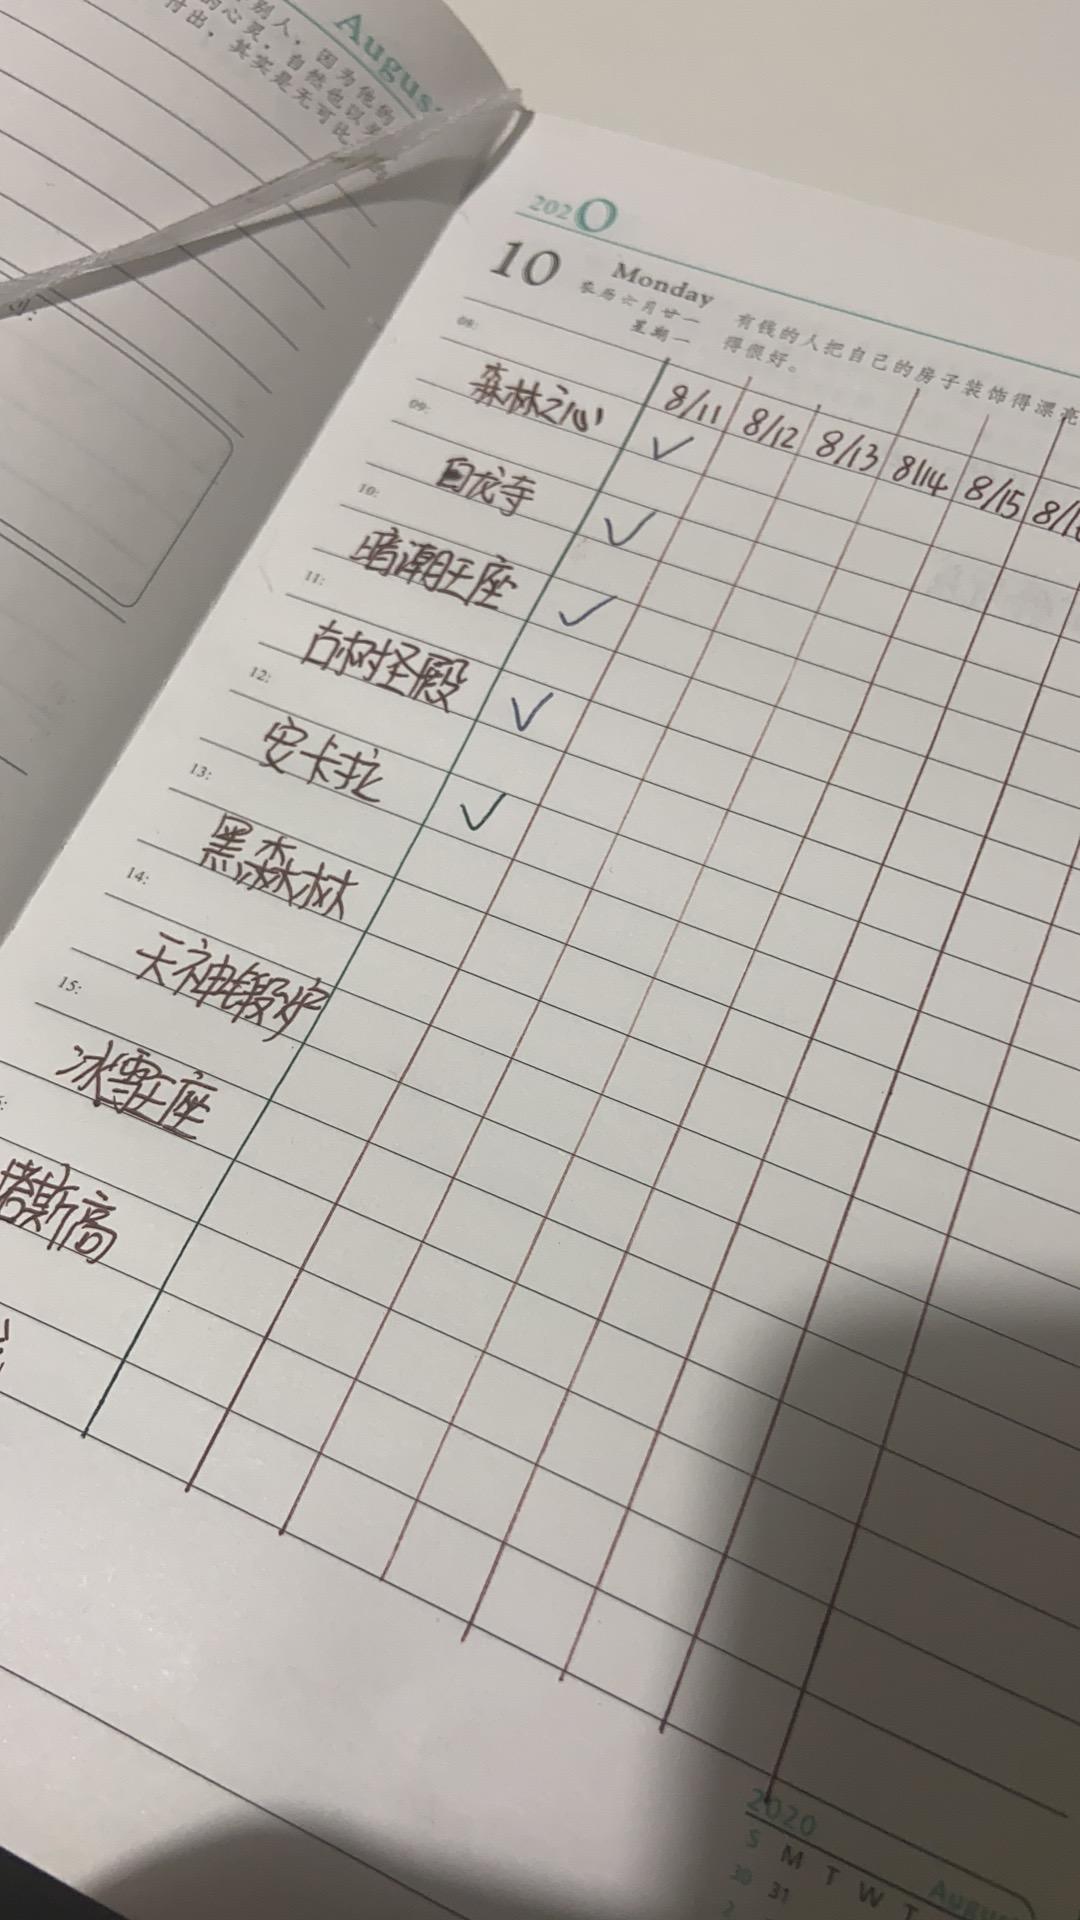 August
别人，因为他的
的心灵，自然也以
付出，其实是无可比
2020
10 Monday
农历七月廿一
星期一
有钱的人把自己的房子装饰得漂亮
得很好。
08:
8/11 8/12 8/13 8/14 8/15 8/1
森林之心 ✓
09:
白龙寺 ✓
10:
暗潮王座 ✓
11:
古树怪殿 ✓
12:
安卡拉 ✓
13:
黑森林
14:
天神锻炉
15:
冰雪王座
塔斯高
2020
August
S M T W T
30 31
2